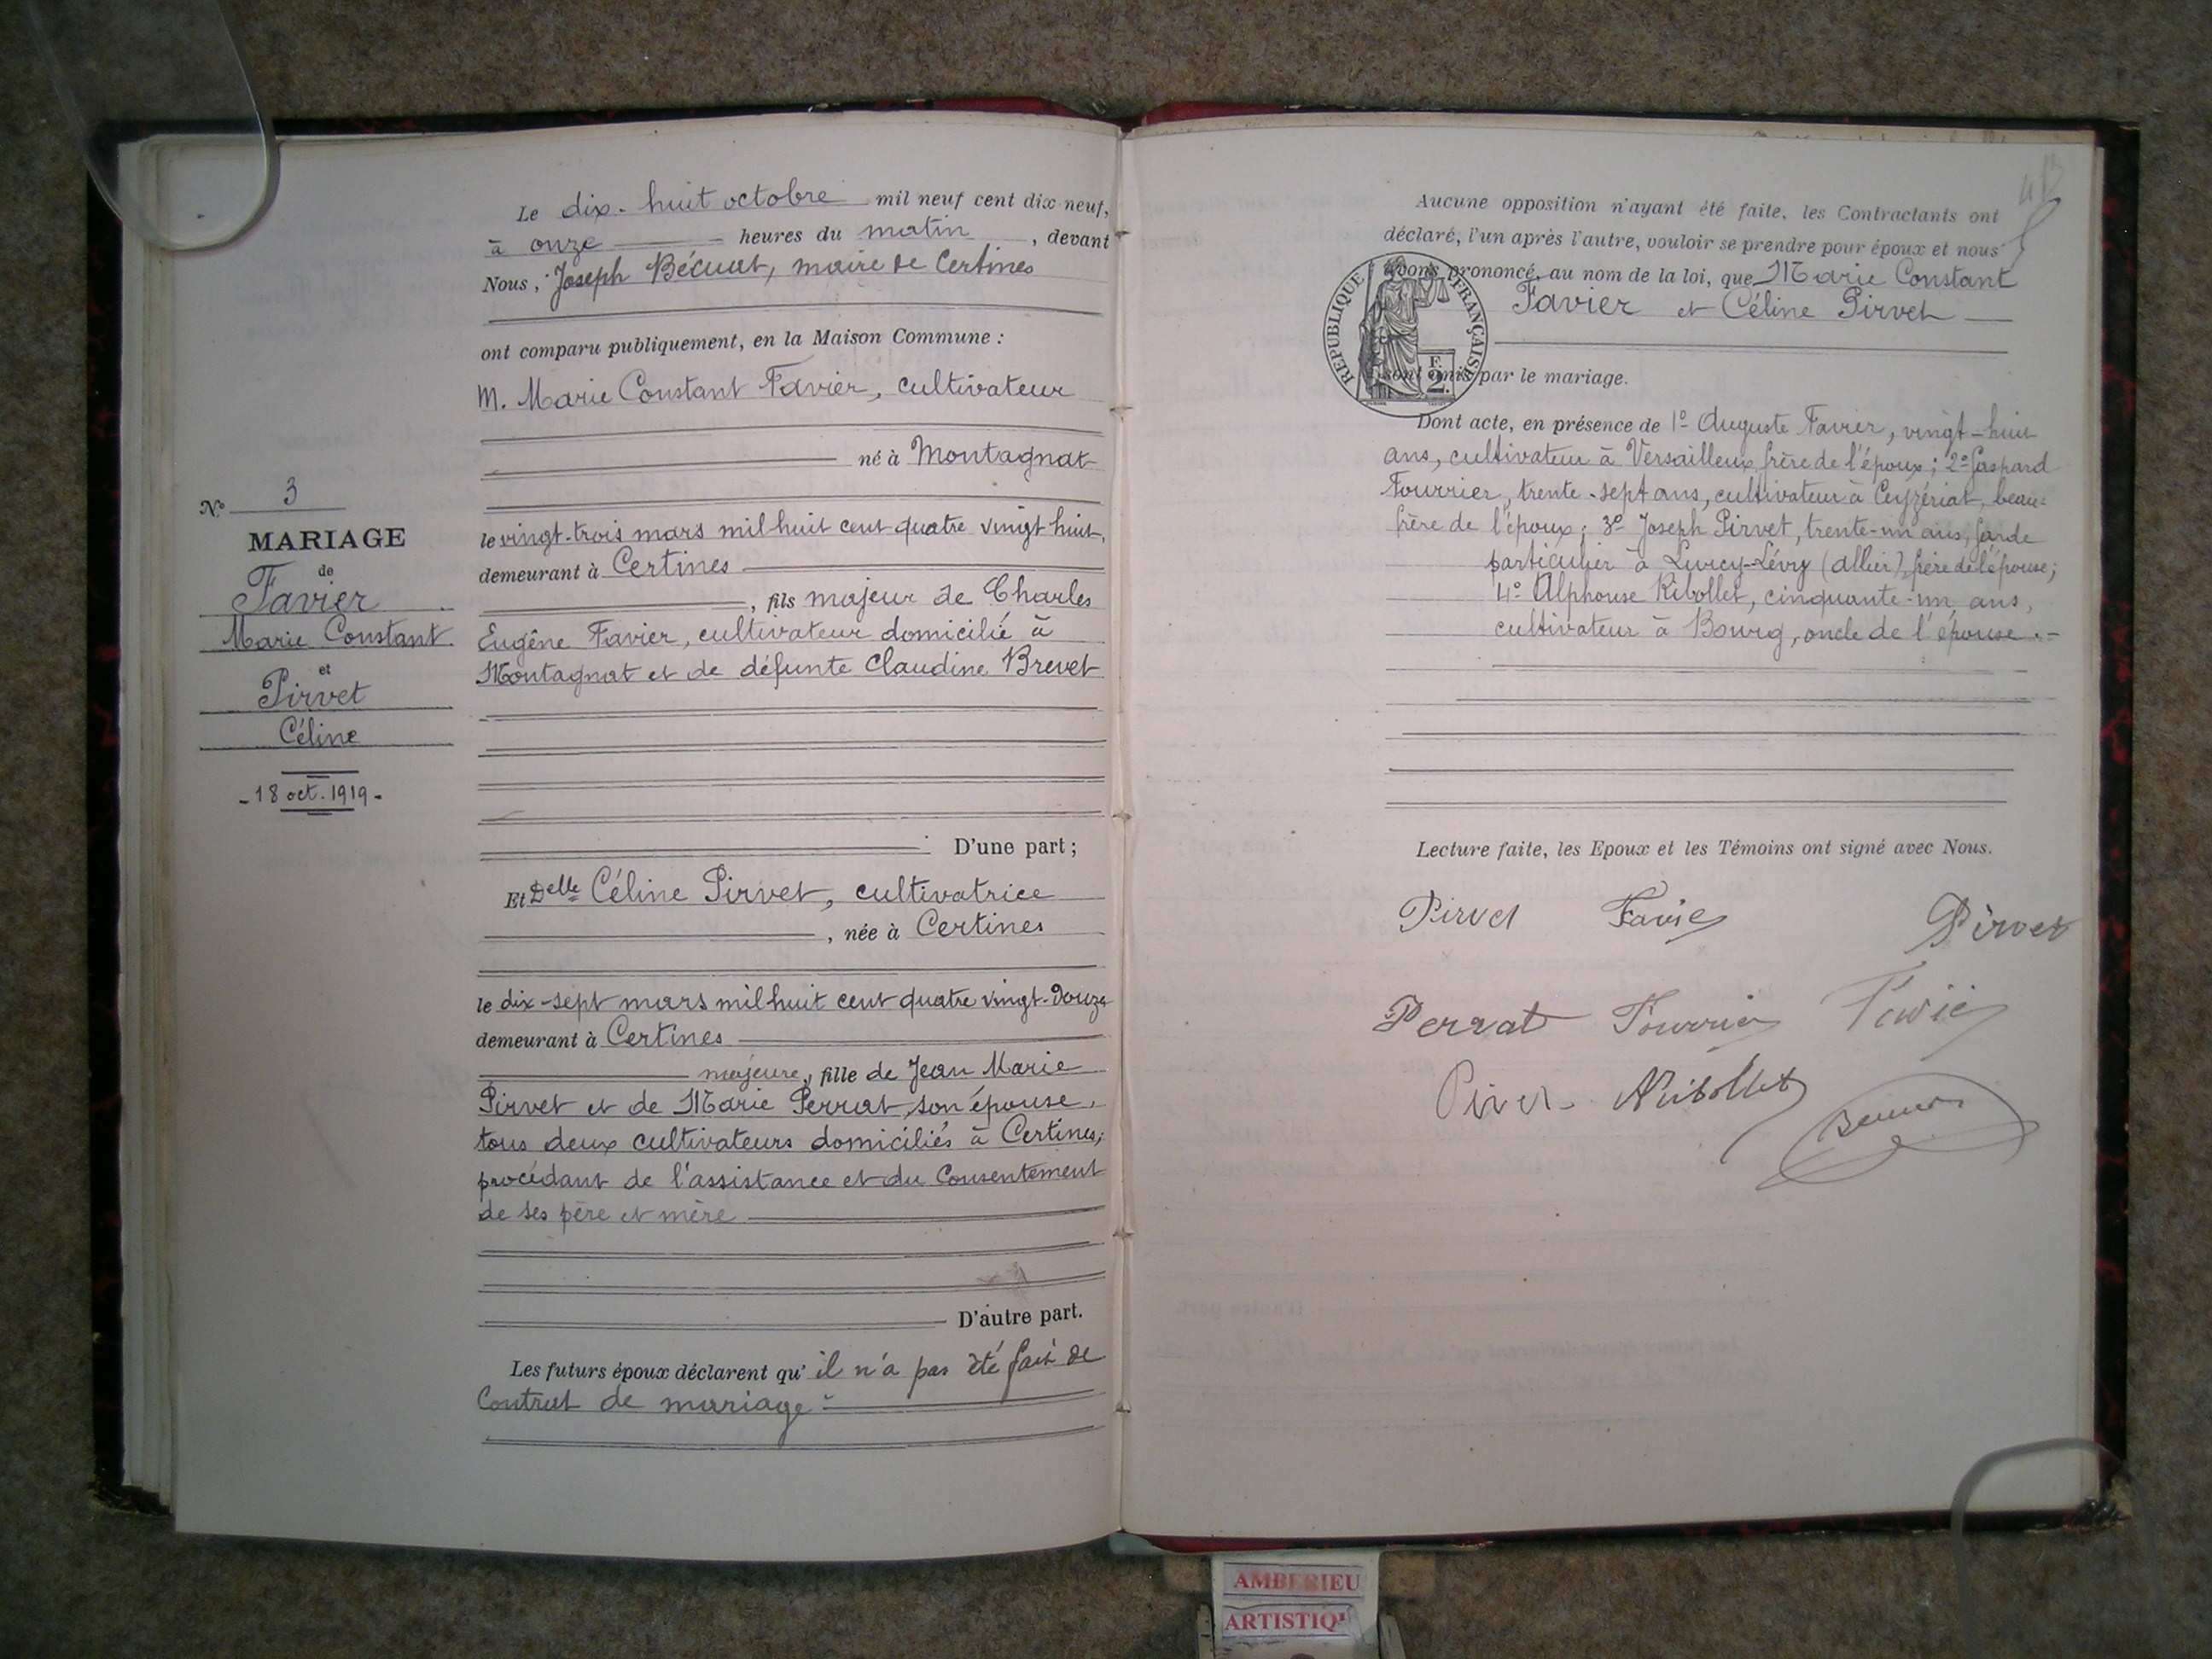 Le dix-huit octobre mil neuf cent dix-neuf,
à onze heures du matin, devant
Nous, Joseph Bécuat, maire de Certines
ont comparu publiquement, en la Maison Commune :
M. Marie Constant Favier, cultivateur
né à Montagnat
le vingt-trois mars mil huit cent quatre vingt huit,
demeurant à Certines
, fils majeur de Charles
Eugène Favier, cultivateur domicilié à
Montagnat et de défunte Claudine Brevet
D'une part ;
Et Delle Céline Pirvet, cultivatrice
, née à Certines
le dix-sept mars mil huit cent quatre vingt-douze
demeurant à Certines
majeure, fille de Jean Marie
Pirvet et de Marie Perrat, son épouse,
tous deux cultivateurs domiciliés à Certines,
procédant de l'assistance et du Consentement
de ses père et mère
D'autre part.
Les futurs époux déclarent qu'il n'a pas été fait de
Contrat de mariage.
N° 3
MARIAGE
de
Favier
Marie Constant
et
Pirvet
Céline
- 18 oct. 1919 -
Aucune opposition n'ayant été faite, les Contractants ont
déclaré, l'un après l'autre, vouloir se prendre pour époux et nous
avons prononcé, au nom de la loi, que Marie Constant
Favier et Céline Pirvet
sont unis par le mariage.
REPUBLIQUE FRANÇAISE
F.
2
Dont acte, en présence de 1° Auguste Favier, vingt-huit
ans, cultivateur à Versailleux, frère de l'époux ; 2° Gaspard
Fourrier, trente-sept ans, cultivateur à Ceyzériat, beau-
frère de l'époux ; 3° Joseph Pirvet, trente-un ans, garde
particulier à Lurcy-Lévy (Allier), frère de l'épouse ;
4° Alphonse Ribollet, cinquante-un ans,
cultivateur à Bourg, oncle de l'épouse.-
Lecture faite, les Epoux et les Témoins ont signé avec Nous.
Pirvet Favier Pirvet
Perrat Fourrier Favier
Pirvet Ribollet
AMBERIEU
ARTISTIQ